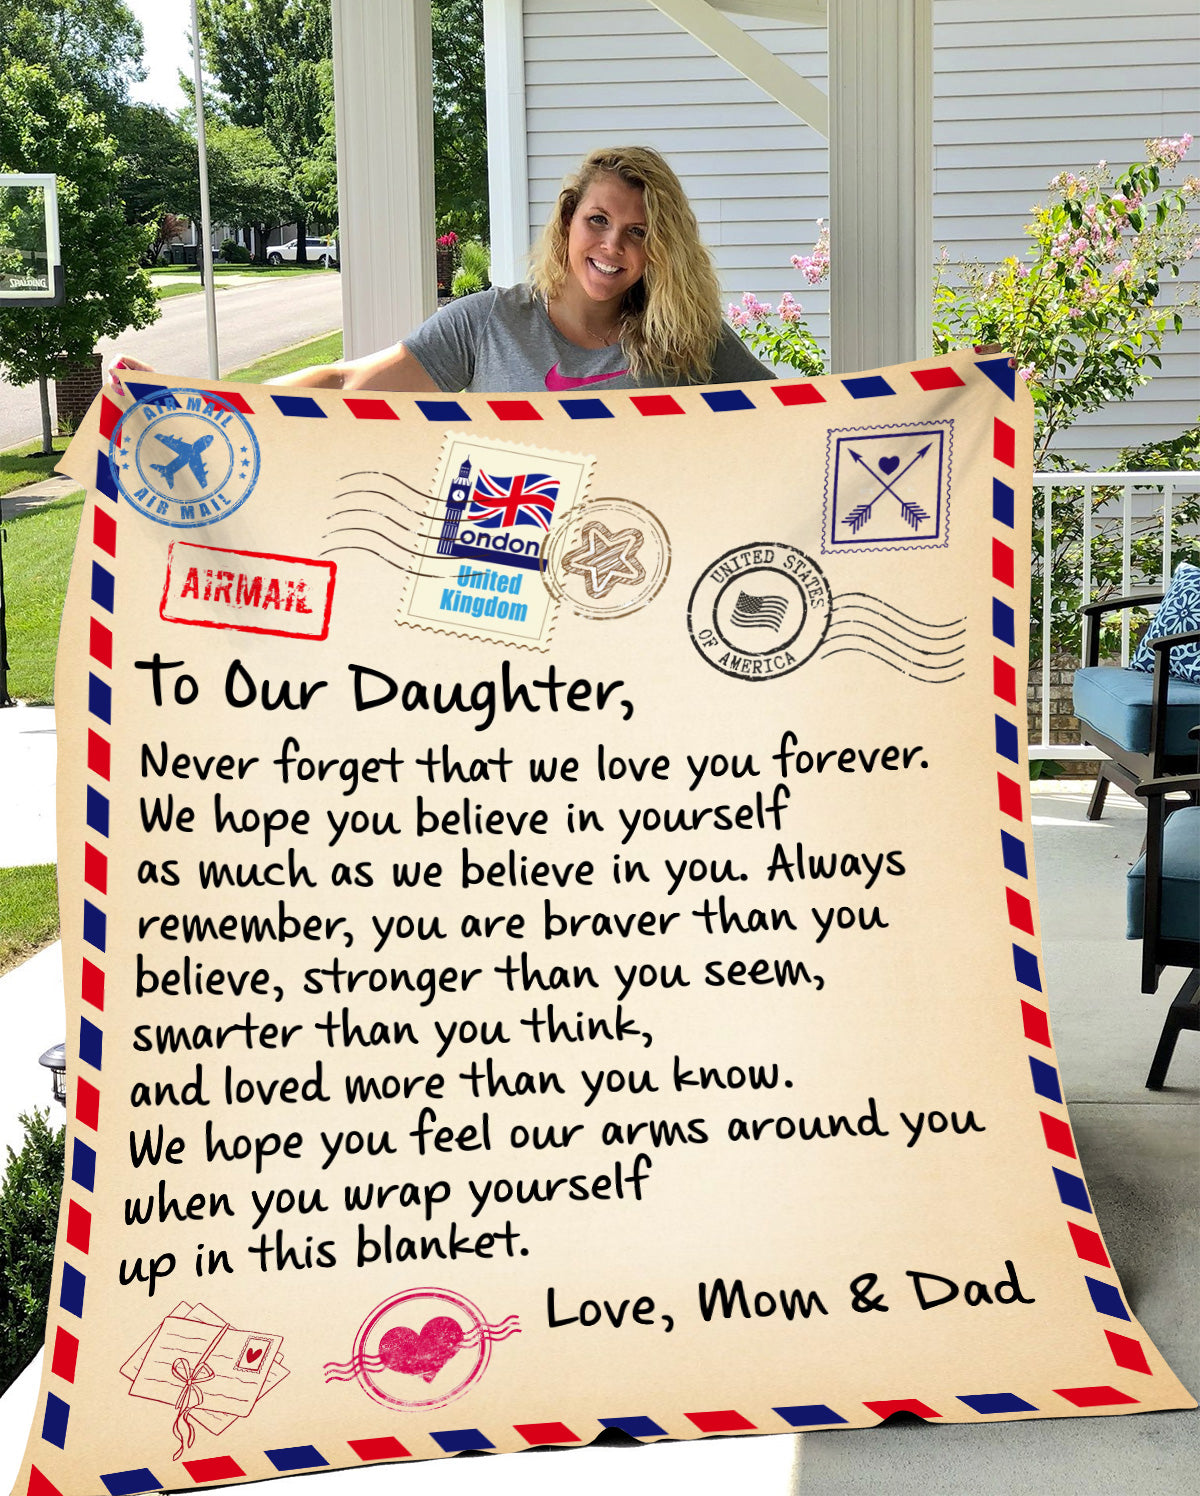 SPALDING
AIR MAIL
AIR MAIL
AIRMAIL
London
United
Kingdom
UNITED STATES
OF AMERICA
To Our Daughter,
Never forget that we love you forever.
We hope you believe in yourself
as much as we believe in you. Always
remember, you are braver than you
believe, stronger than you seem,
smarter than you think,
and loved more than you know.
We hope you feel our arms around you
when you wrap yourself
up in this blanket.
Love, Mom & Dad